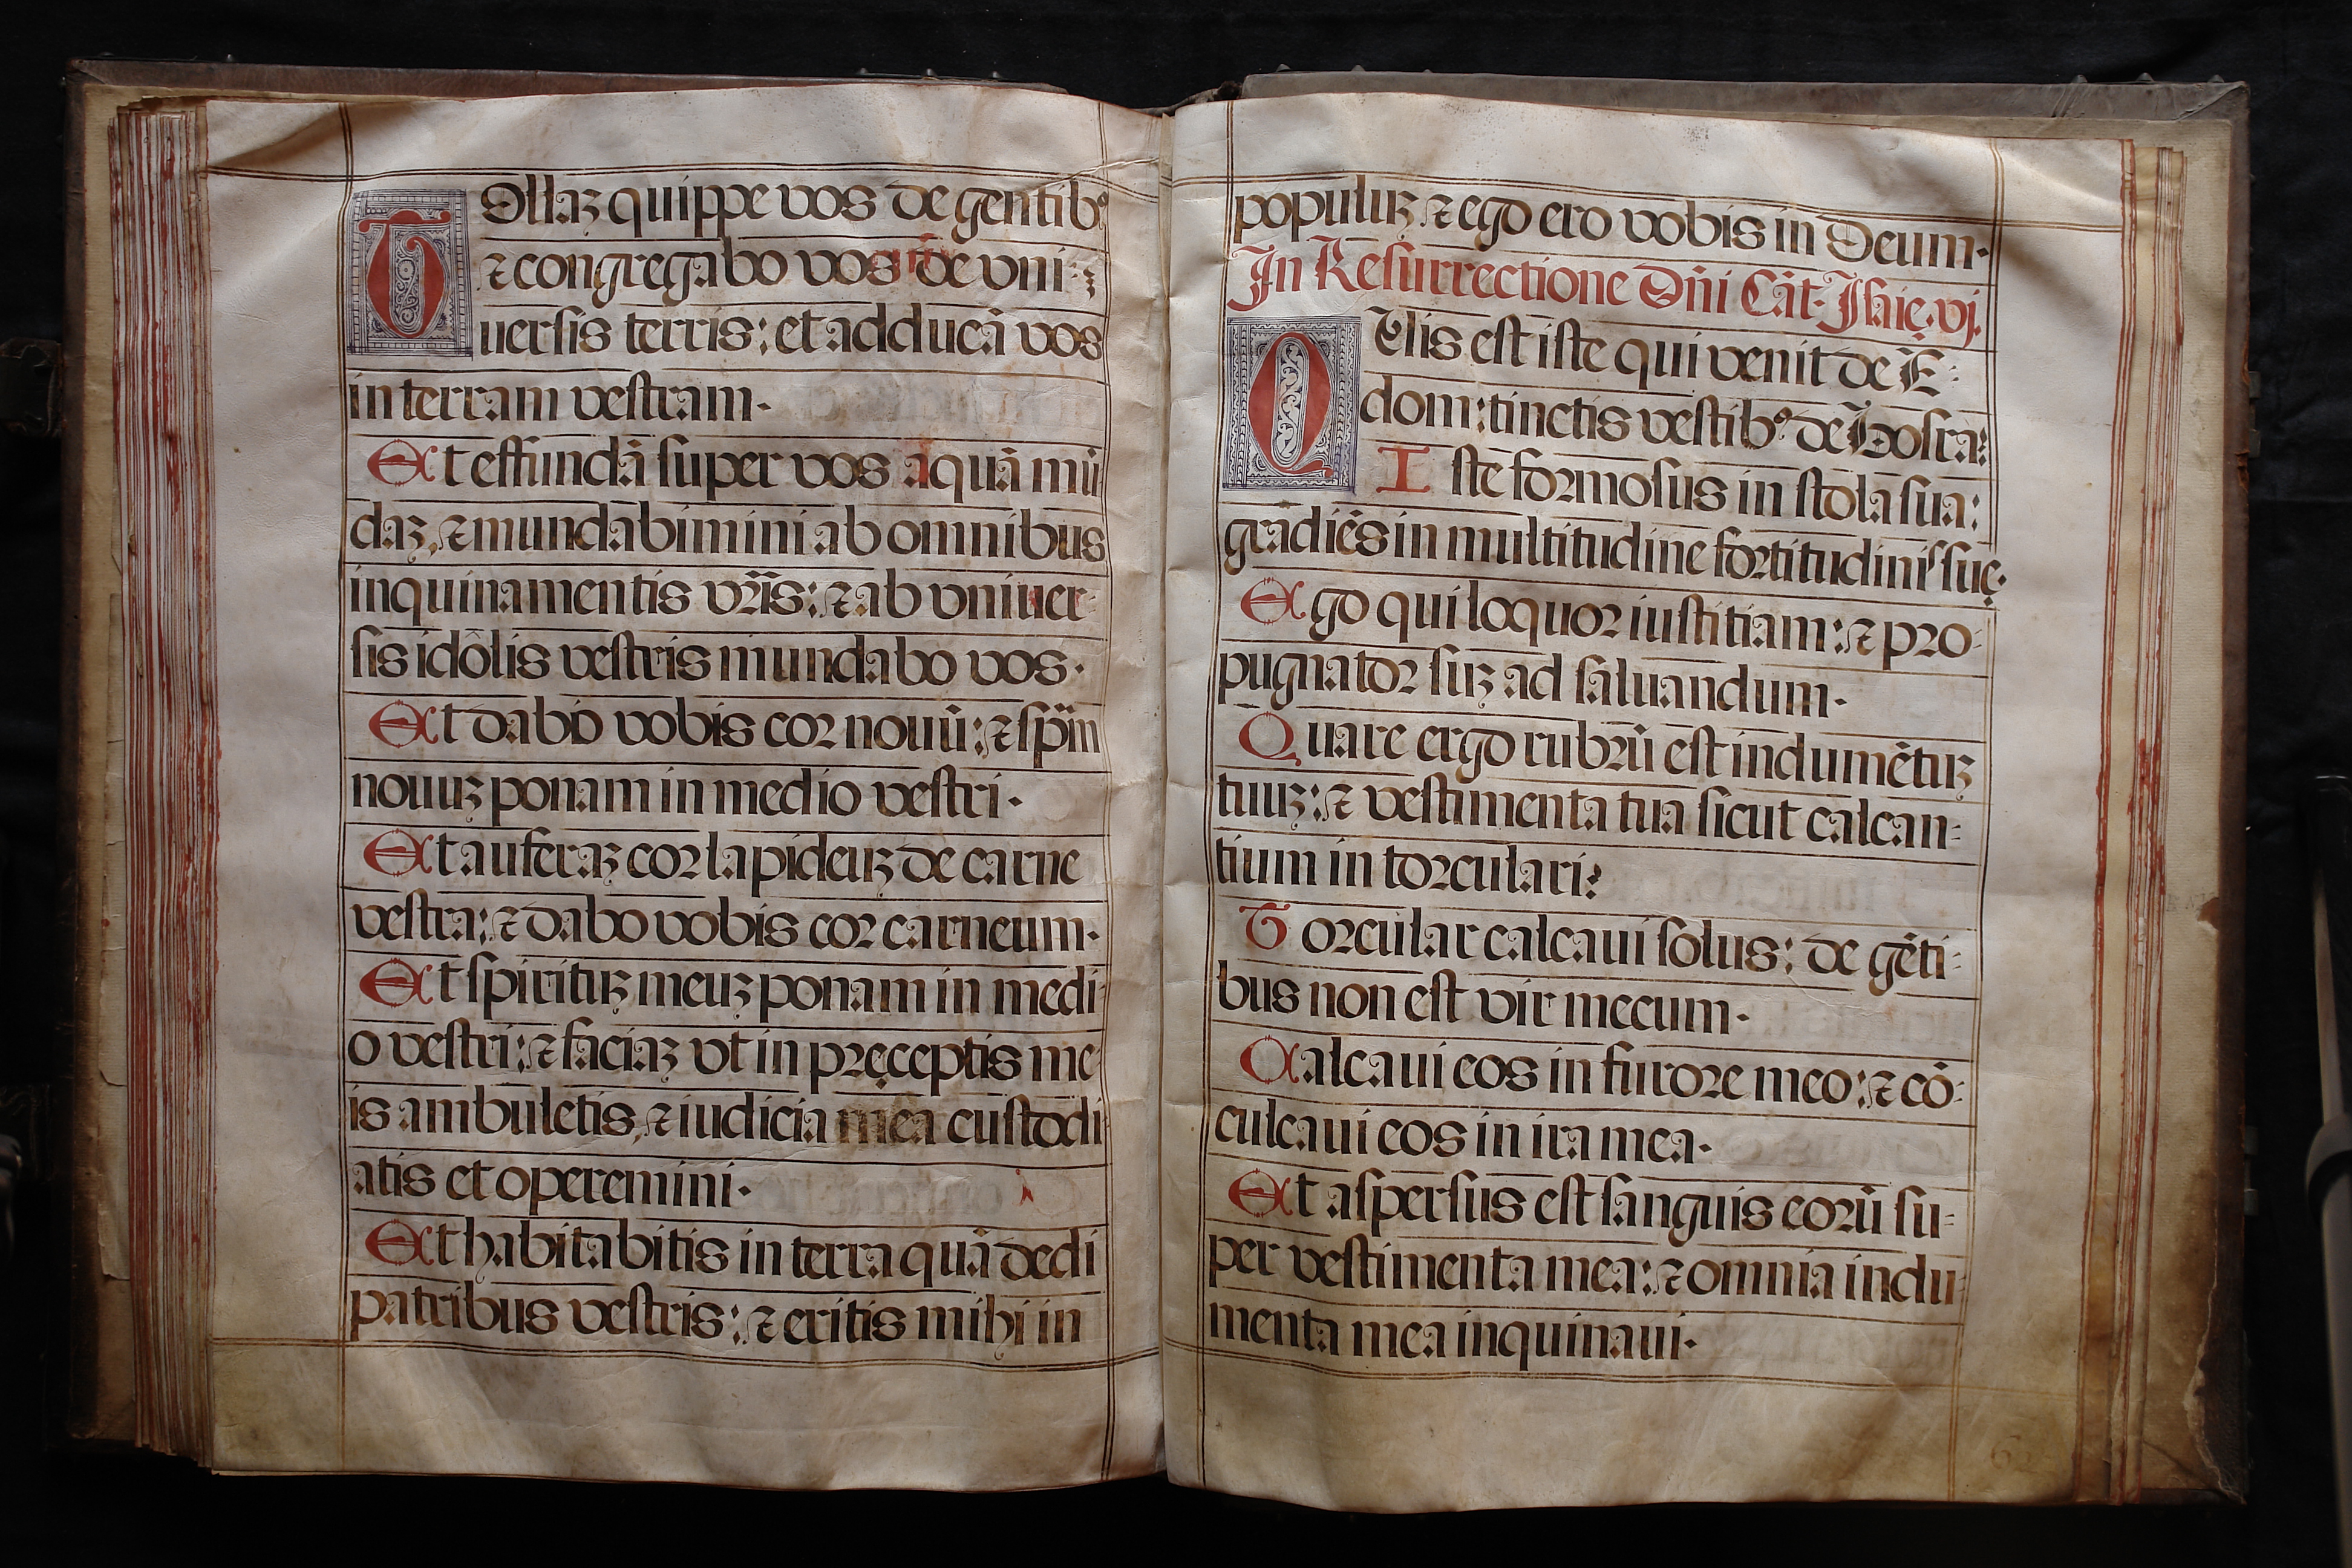 Tollaꝫ quippe vos de gentibꝰ
⁊ congregabo vos de vni-
uersis terris: et adducā vos
in terram vestram.
Et effundā super vos aquā mū
daꝫ, ⁊ mundabimini ab omnibus
inquinamentis vr̄is: ⁊ ab vniuer-
sis idôlis vestris mundabo vos.
Et dabo vobis cor nouū: ⁊ sp̄m
nouuꝫ ponam in medio vestri.
Et auferaꝫ cor lapideuꝫ de carne
vestra: ⁊ dabo vobis cor carneum.
Et spirituꝫ meuꝫ ponam in medi-
o vestri: ⁊ faciaꝫ vt in pręceptis me-
is ambuletis, ⁊ iudicia mea custodi
atis et operemini.
Et habitabitis in terra quā dedi
patribus vestris: ⁊ eritis mihi in
populuꝫ ⁊ ego ero vobis in Deum.
In Resurrectione Dn̄i Cāt. Isaię. vj.
QVis est iste qui venit de E-
dom: tinctis vestibꝰ de Bosra?
Iste formosus in stola sua:
gradiēs in multitudine fortitudinis suę.
Ego qui loquor iustitiam: ⁊ pro-
pugnator suꝫ ad saluandum.
Quare ergo rubrū est indumētuꝫ
tuuꝫ: ⁊ vestimenta tua sicut calcan-
tium in torculari?
Torcular calcaui solus: de gēti-
bus non est vir mecum.
Calcaui eos in furore meo: ⁊ cō-
culcaui eos in ira mea.
Et aspersus est sanguis eorū su-
per vestimenta mea: ⁊ omnia indu-
menta mea inquinaui.